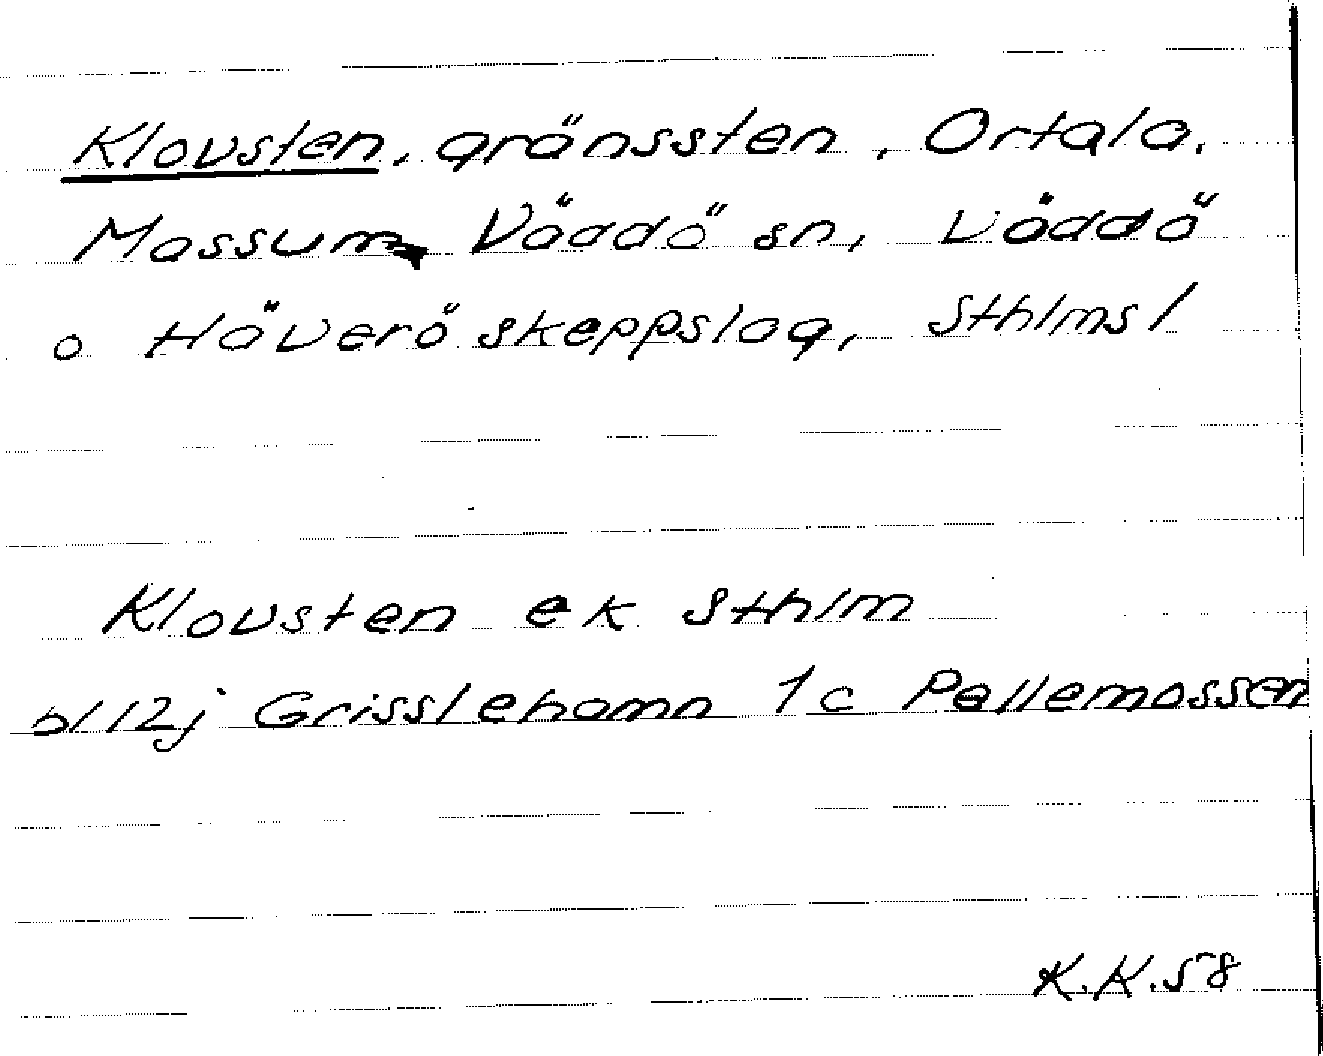 Klovsten, gränssten, Ortala,
Massum, Väddö sn, Väddö
o Häverö skeppslag, Sthlms l
Klovsten ek Sthlm
bl 12j Grisslehamn 1c Pallemossen
K.K.58